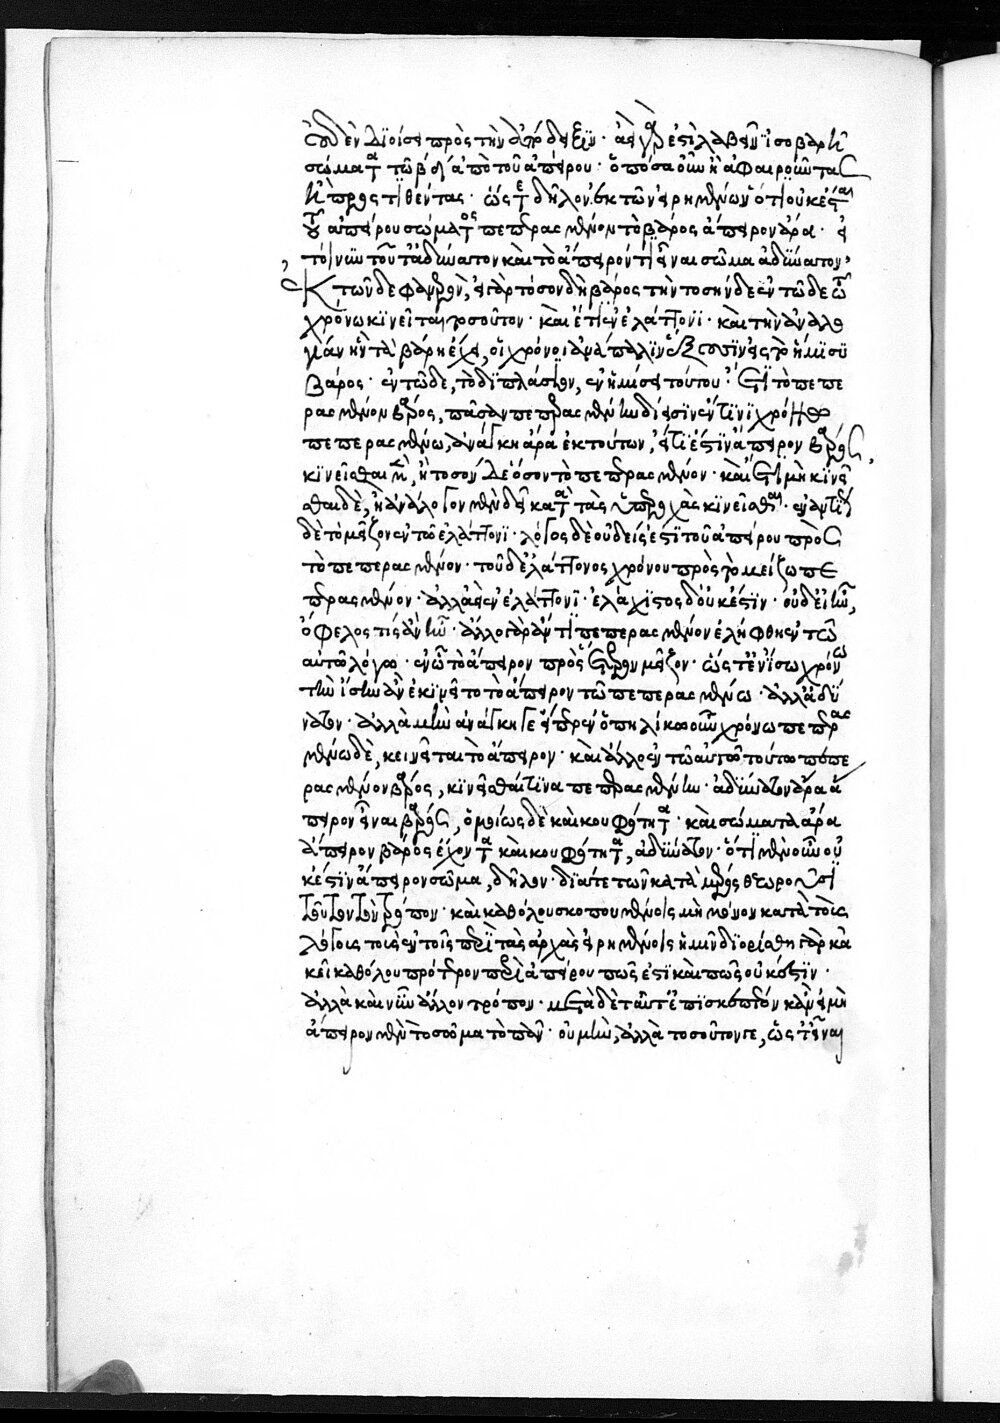 οὐδὲν διοίσει πρὸς τὴν ἀπόδειξιν· ἀεὶ γὰρ ἔσται λαβεῖν ἰσοβαρῆ
σώματα τῶ βάρει ἀπὸ τοῦ ἀπείρου· ὁπόσα οὖν ἢ ἀφαιροῦντας
ἢ προστιθέντας· ὥστε δῆλον ἐκ τῶν εἰρημένων ὅτι οὐκ ἔσται
τοῦ ἀπείρου σώματος πεπερασμένον τὸ βάρος ἄπειρον ἄρα· εἰ
τοίνυν τοῦτ' ἀδύνατον καὶ τὸ ἄπειρόν τι εἶναι σῶμα ἀδύνατον·
ἐκ τῶνδε φανερὸν, εἰ γὰρ τοσονδὴ βάρος τὴν τοσήνδε ἐν τῶδε τῶ
χρόνω κινεῖται τοσοῦτον· καὶ ἔτι ἐν ἐλάττονι· καὶ τὴν ἀναλο
γίαν ἣν τὰ βάρη ἔχει, οἱ χρόνοι ἀνάπαλιν ἕξουσιν εἰ τὸ ἥμισυ
βάρος· ἐν τῶδε, τὸ διπλάσιον, ἐν ἡμίσει τούτου· ἔτι τὸ πεπε
ρασμένον βάρος, πᾶσαν πεπερασμένην δίεισιν ἔν τινι χρόνω
πεπερασμένω, ἀνάγκη ἄρα ἐκ τούτων, εἴ τι ἐστὶν ἄπειρον βάρος,
κινεῖσθαι μὲν, ἢ τοσόνδε ὅσον τὸ πεπερασμένον· καὶ ἔτι μὴ κινεῖ
σθαι δὲ, ἢ ἀνάλογον μὲν δεῖ κατὰ τὰς ὑπεροχὰς κινεῖσθαι· ἐναντίως
δὲ τὸ μεῖζον ἐν τῶ ἐλάττονι· λόγος δὲ οὐδείς ἐστι τοῦ ἀπείρου πρὸς
τὸ πεπερασμένον· τοῦ δ' ἐλάττονος χρόνου πρὸς τὸ μείζω πε
περασμένον· ἀλλ' ἀεὶ ἐν ἐλάττονι· ἐλάχιστος δ' οὐκ ἔστιν· οὐδ' εἰ ἦν,
ὄφελός τι ἂν ἦν· ἄλλο γὰρ ἄν τι πεπερασμένον ἐλήφθη ἐν τῶ
αὐτῶ λόγω· ἐν ὧ τὸ ἄπειρον πρὸς ἕτερον μεῖζον· ὥστ' ἐν ἴσω χρόνω
τὴν ἴσην ἂν ἐκινεῖτο τὸ ἄπειρον τῶ πεπερασμένω· ἀλλ' ἀδύ
νατον· ἀλλὰ μὴν ἀνάγκη γε εἴπερ ἐν ὁπηλικωοῦν χρόνω πεπερασ
μένω δὲ, κεινεῖται τὸ ἄπειρον· καὶ ἄλλο ἐν τῶ αὐτῶ τούτω πεπε
ρασμένον βάρος, κινεῖσθαί τινα πεπερασμένην· ἀδύνατον ἄρα ἄ
πειρον εἶναι βάρος, ὁμοίως δὲ καὶ κουφότητα· καὶ σώματα ἄρα
ἄπειρον βάρος ἔχοντα καὶ κουφότητα, ἀδύνατον· ὅτι μὲν οὖν οὐ
κ ἔστιν ἄπειρον σῶμα, δῆλον· διά τε τῶν κατὰ μέρος θεωροῦσι
τοῦτον τὸν τρόπον· καὶ καθόλου σκοπουμένοις μὴ μόνον κατὰ τοὺς
λόγους τοὺς ἐν τοῖς περὶ τὰς ἀρχὰς εἰρημένοις ἡμῖν διορίσθη γὰρ κἀ
κεῖ καθόλου πρότερον περὶ ἀπείρου πῶς ἐστι καὶ πῶς οὐκ ἔστιν·
ἀλλὰ καὶ νῦν ἄλλον τρόπον· μετὰ δὲ ταῦτ' ἐπισκεπτέον κἂν εἰ μὴ
ἄπειρον μὲν τὸ σῶμα τὸ πᾶν· οὐ μὴν ἀλλὰ τοσοῦτόν γε, ὥστ' εἶναι